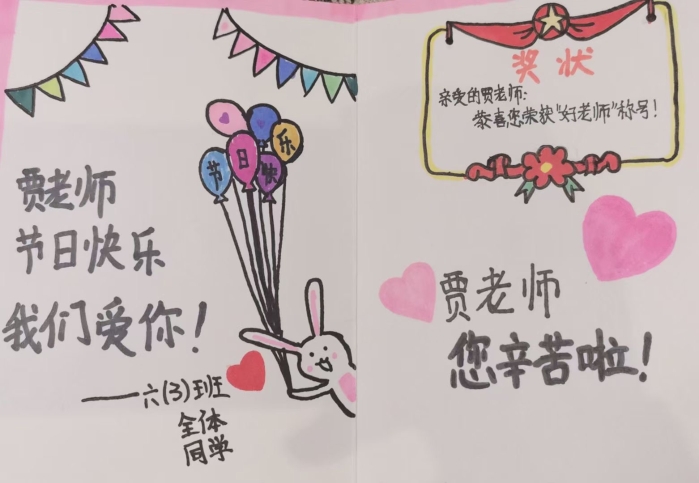 节日快乐
贾老师
节日快乐
我们爱你！
——六(3)班
全体
同学
奖状
亲爱的贾老师：
恭喜您荣获“好老师”称号！
贾老师
您辛苦啦！